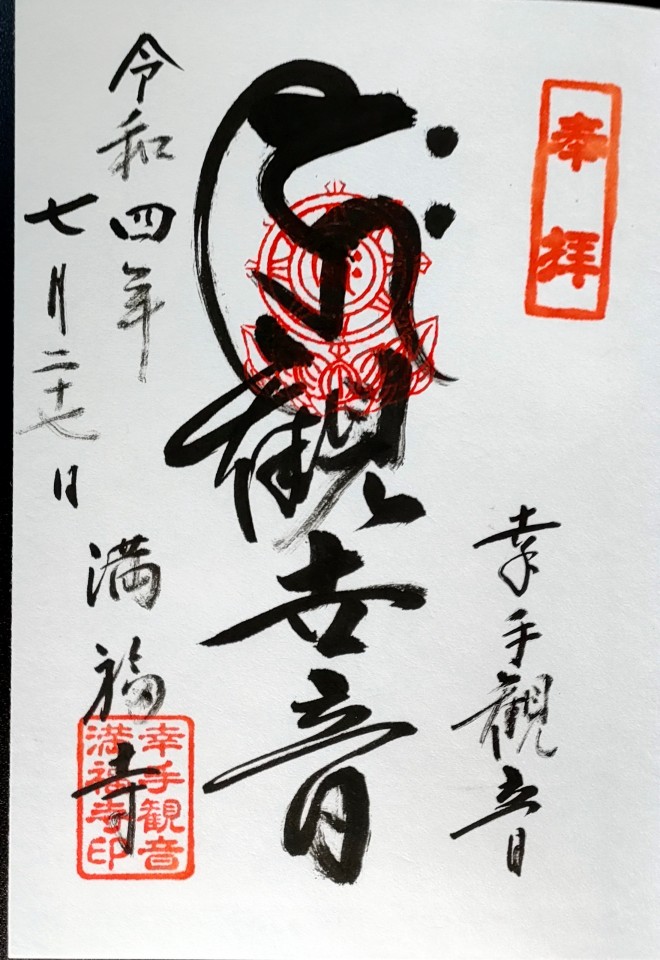 奉拝
幸手観音
観世音
令和四年
七月二十七日
満福寺
幸手観音
満福寺印